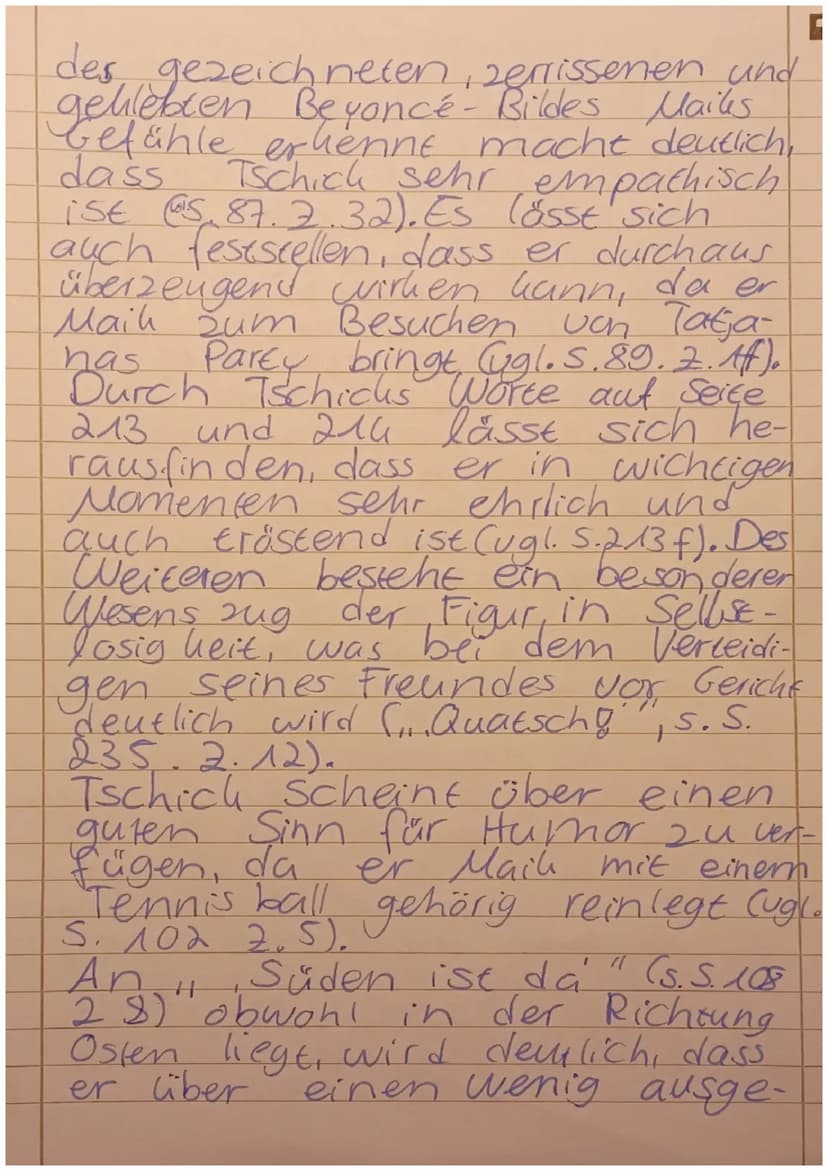 des gezeichneten, zerrissenen und
geklebten Beyoncé-Bildes Maiks
Gefühle erkennt macht deutlich,
dass Tschick sehr empathisch
ist S. 87. Z. 32). Es lässt sich
auch feststellen, dass er durchaus
überzeugend wirken kann, da er
Maik zum Besuchen von Tatja-
nas Party bringt (vgl. S. 89. Z. 1f).
Durch Tschicks Worte auf Seite
213 und 214 lässt sich he-
rausfinden, dass er in wichtigen
Momenten sehr ehrlich und
auch tröstend ist (vgl. S. 213 f). Des
Weiteren besteht ein besonderer
Wesenszug der Figur, in Selbst-
losigkeit, was bei dem Verteidi-
gen seines Freundes vor Gericht
deutlich wird („Quatsch!", s. S.
235. Z. 12).
Tschick scheint über einen
guten Sinn für Humor zu ver-
fügen, da er Maik mit einem
Tennisball gehörig reinlegt (vgl.
S. 102 Z. 5).
An „Süden ist da" (s. S. 108
Z 8) obwohl in der Richtung
Osten liegt, wird deutlich, dass
er über einen wenig ausge-